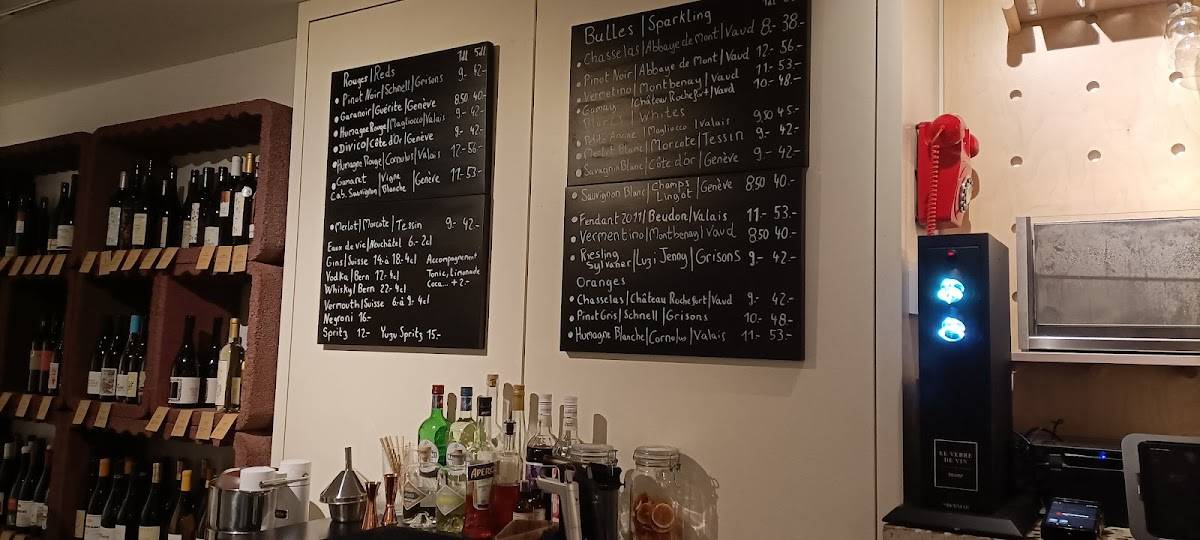 Rouges/Reds 1dl 5dl
Pinot Noir/Schnell/Grisons 9.- 42.-
Garanoir/Guérite/Genève 8.50 40.-
Humagne Rouge/Magliocco/Valais 9.- 42.-
Divico/Côte d'Or/Genève 9.- 42.-
Humagne Rouge/Cornulus/Valais 12.- 56.-
Gamaret / Vigne / Genève 11.- 53.-
Cab. Sauvignon / Blanche
Merlot/Morcote/Tessin 9.- 42.-
Eaux de vie/Neuchâtel 6.- 2cl
Gins/Suisse 14.- à 18.- 4cl Accompagnement
Vodka/Bern 12.- 4cl Tonic, Limonade
Whisky/Bern 22.- 4cl Coca... + 2.-
Vermouth/Suisse 6.- à 9.- 4cl
Negroni 16.-
Spritz 12.- Yuzu Spritz 15.-
Bulles/Sparkling
Chasselas/Abbaye de Mont/Vaud 8.- 38.-
Pinot Noir/Abbaye de Mont/Vaud 12.- 56.-
Vermentino/Montbenay/Vaud 11.- 53.-
Gamay /Château Rochefort/Vaud 10.- 48.-
Whites
Petite Arvine/Magliocco/Valais 9.50 45.-
Merlot Blanc/Morcote/Tessin 9.- 42.-
Savagnin Blanc/Côte d'or/Genève 9.- 42.-
Sauvignon Blanc/Champs Lingot/Genève 8.50 40.-
Fendant 2011/Beudon/Valais 11.- 53.-
Vermentino/Montbenay/Vaud 8.50 40.-
Riesling Sylvaner/Luzi Jenny/Grisons 9.- 42.-
Oranges
Chasselas/Château Rochefort/Vaud 9.- 42.-
Pinot Gris/Schnell/Grisons 10.- 48.-
Humagne Blanche/Cornulus/Valais 11.- 53.-
APEROL
LE VERRE
DE VIN